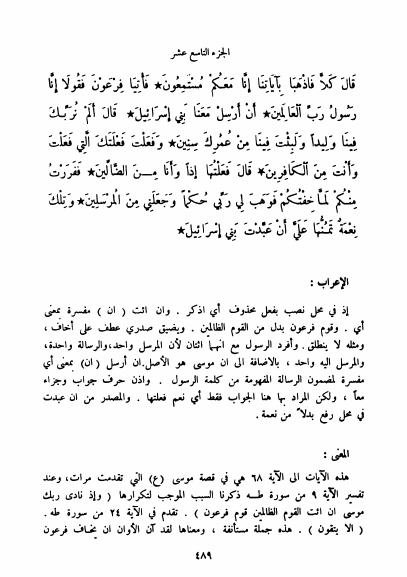 الجزء التاسع عشر
قَالَ كَلَّا فَاذْهَبَا بِآيَاتِنَا إِنَّا مَعَكُمْ مُسْتَمِعُونَ * فَأْتِيَا فِرْعَوْنَ فَقُولَا إِنَّا
رَسُولُ رَبِّ الْعَالَمِينَ * أَنْ أَرْسِلْ مَعَنَا بَنِي إِسْرَائِيلَ * قَالَ أَلَمْ نُرَبِّكَ
فِينَا وَلِيداً وَلَبِثْتَ فِينَا مِنْ عُمُرِكَ سِنِينَ * وَفَعَلْتَ فَعْلَتَكَ الَّتِي فَعَلْتَ
وَأَنْتَ مِنَ الْكَافِرِينَ * قَالَ فَعَلْتُهَا إِذاً وَأَنَا مِنَ الضَّالِّينَ * فَفَرَرْتُ
مِنْكُمْ لَمَّا خِفْتُكُمْ فَوَهَبَ لِي رَبِّي حُكْماً وَجَعَلَنِي مِنَ الْمُرْسَلِينَ * وَتِلْكَ
نِعْمَةٌ تَمُنُّهَا عَلَيَّ أَنْ عَبَّدْتَ بَنِي إِسْرَائِيلَ *
الإعراب :
إذ في محل نصب بفعل محذوف أي اذكر . وان ائت ( ان ) مفسرة بمعنى
أي . وقوم فرعون بدل من القوم الظالمين . ويضيق صدري عطف على أخاف ،
ومثله لا ينطلق . وأفرد الرسول مع انهما اثنان لأن المرسل واحد،والرسالة واحدة،
والمرسل اليه واحد ، بالاضافة الى ان موسى هو الأصل.ان أرسل (ان) بمعنى أي
مفسرة لمضمون الرسالة المفهومة من كلمة الرسول . واذن حرف جواب وجزاء
معاً ، ولكن المراد بها هنا الجواب فقط أي نعم فعلتها . والمصدر من ان عبدت
في محل رفع بدلاً من نعمة .
المعنى :
هذه الآيات الى الآية ٦٨ هي في قصة موسى (ع) التي تقدمت مرات،وعند
تفسير الآية ٩ من سورة طه ذكرنا السبب الموجب لتكرارها ( وإذ نادى ربك
موسى ان ائت القوم الظالمين قوم فرعون ) . تقدم في الآية ٢٤ من سورة طه .
( الا يتقون ) . هذه جملة مستأنفة ، ومعناها لقد آن الأوان ان يخاف فرعون
٤٨٩